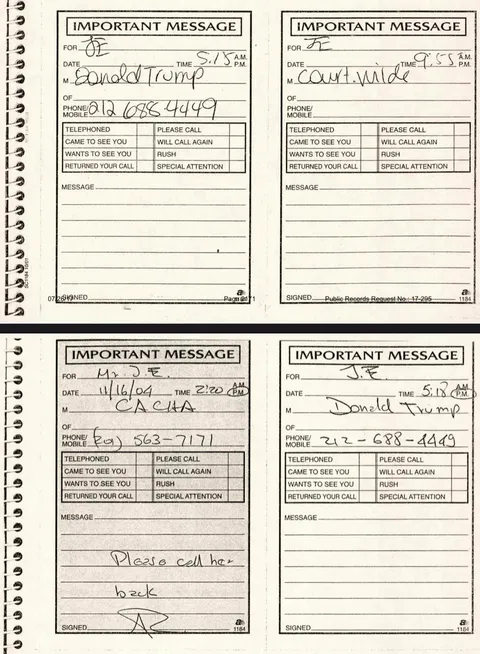 IMPORTANT MESSAGE
FOR JE
DATE TIME 5:15 A.M. P.M.
M Donald Trump
OF
PHONE/ MOBILE 212 688-4449
TELEPHONED PLEASE CALL
CAME TO SEE YOU WILL CALL AGAIN
WANTS TO SEE YOU RUSH
RETURNED YOUR CALL SPECIAL ATTENTION
MESSAGE
SIGNED
1184
IMPORTANT MESSAGE
FOR JE
DATE TIME 9:55 A.M. P.M.
M Court. wilde
OF
PHONE/ MOBILE
TELEPHONED PLEASE CALL
CAME TO SEE YOU WILL CALL AGAIN
WANTS TO SEE YOU RUSH
RETURNED YOUR CALL SPECIAL ATTENTION
MESSAGE
SIGNED
1184
Public Records Request No.: 17-295
IMPORTANT MESSAGE
FOR Mr. J.E.
DATE 11/16/04 TIME 2:20 A.M. P.M.
M CACHA
OF
PHONE/ MOBILE 563-7171
TELEPHONED PLEASE CALL
CAME TO SEE YOU WILL CALL AGAIN
WANTS TO SEE YOU RUSH
RETURNED YOUR CALL SPECIAL ATTENTION
MESSAGE
Please call her
back
SIGNED
1184
IMPORTANT MESSAGE
FOR J.E.
DATE TIME 5:18 A.M. P.M.
M Donald Trump
OF
PHONE/ MOBILE 212-688-4449
TELEPHONED PLEASE CALL
CAME TO SEE YOU WILL CALL AGAIN
WANTS TO SEE YOU RUSH
RETURNED YOUR CALL SPECIAL ATTENTION
MESSAGE
SIGNED
1184